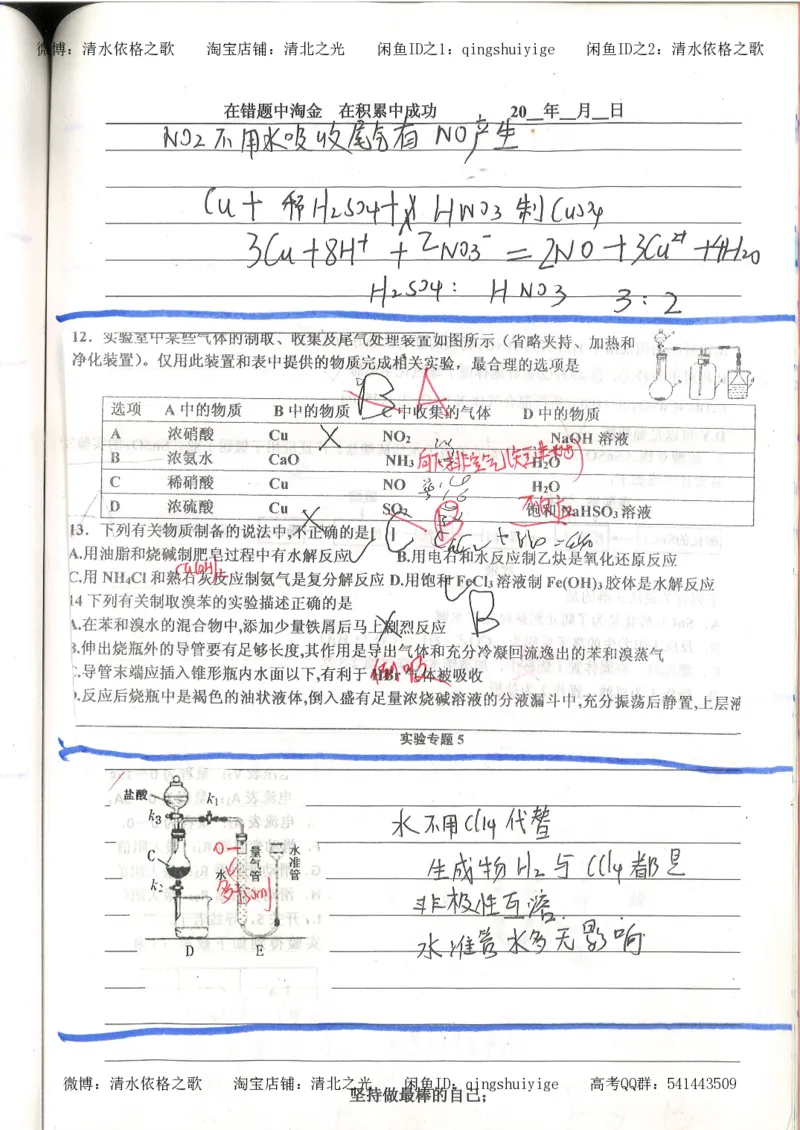 微博：清水依格之歌 淘宝店铺：清北之光 闲鱼ID之1：qingshuiyige 闲鱼ID之2：清水依格之歌
在错题中淘金 在积累中成功 20__年__月__日
NO2不用水吸收尾气有 NO产生
Cu+ 稀H2SO4+ HNO3 制CuSO4
3Cu+8H⁺ + 2NO3⁻ = 2NO+3Cu²⁺+4H2O
H2SO4: HNO3 3:2
12．实验室中某些气体的制取、收集及尾气处理装置如图所示（省略夹持、加热和
净化装置）。仅用此装置和表中提供的物质完成相关实验，最合理的选项是
B A
选项 A 中的物质 B 中的物质 C 中收集的气体 D 中的物质
A 浓硝酸 Cu NO₂ NaOH 溶液
B 浓氨水 CaO NH₃ H₂O
C 稀硝酸 Cu NO H₂O
D 浓硫酸 Cu SO₂ 饱和 NaHSO₃ 溶液
不反应
13．下列有关物质制备的说法中,不正确的是[ ] C
A.用油脂和烧碱制肥皂过程中有水解反应 B.用电石和水反应制乙炔是氧化还原反应
C.用 NH₄Cl 和熟石灰反应制氨气是复分解反应 D.用饱和 FeCl₃ 溶液制 Fe(OH)₃ 胶体是水解反应
14 下列有关制取溴苯的实验描述正确的是 B
A.在苯和溴水的混合物中,添加少量铁屑后马上剧烈反应
B.伸出烧瓶外的导管要有足够长度,其作用是导出气体和充分冷凝回流逸出的苯和溴蒸气
C.导管末端应插入锥形瓶内水面以下,有利于 HBr 气体被吸收
倒吸
D.反应后烧瓶中是褐色的油状液体,倒入盛有足量浓烧碱溶液的分液漏斗中,充分振荡后静置,上层液
实验专题 5
盐酸
k₁
k₃
C
k₂
0
量气管
水
水准管
50ml
D E
水不用CCl4代替
生成物 H2与 CCl4都是
非极性互溶.
水准管水多无影响
微博：清水依格之歌 淘宝店铺：清北之光 闲鱼ID：qingshuiyige 高考QQ群：541443509
坚持做最棒的自己;